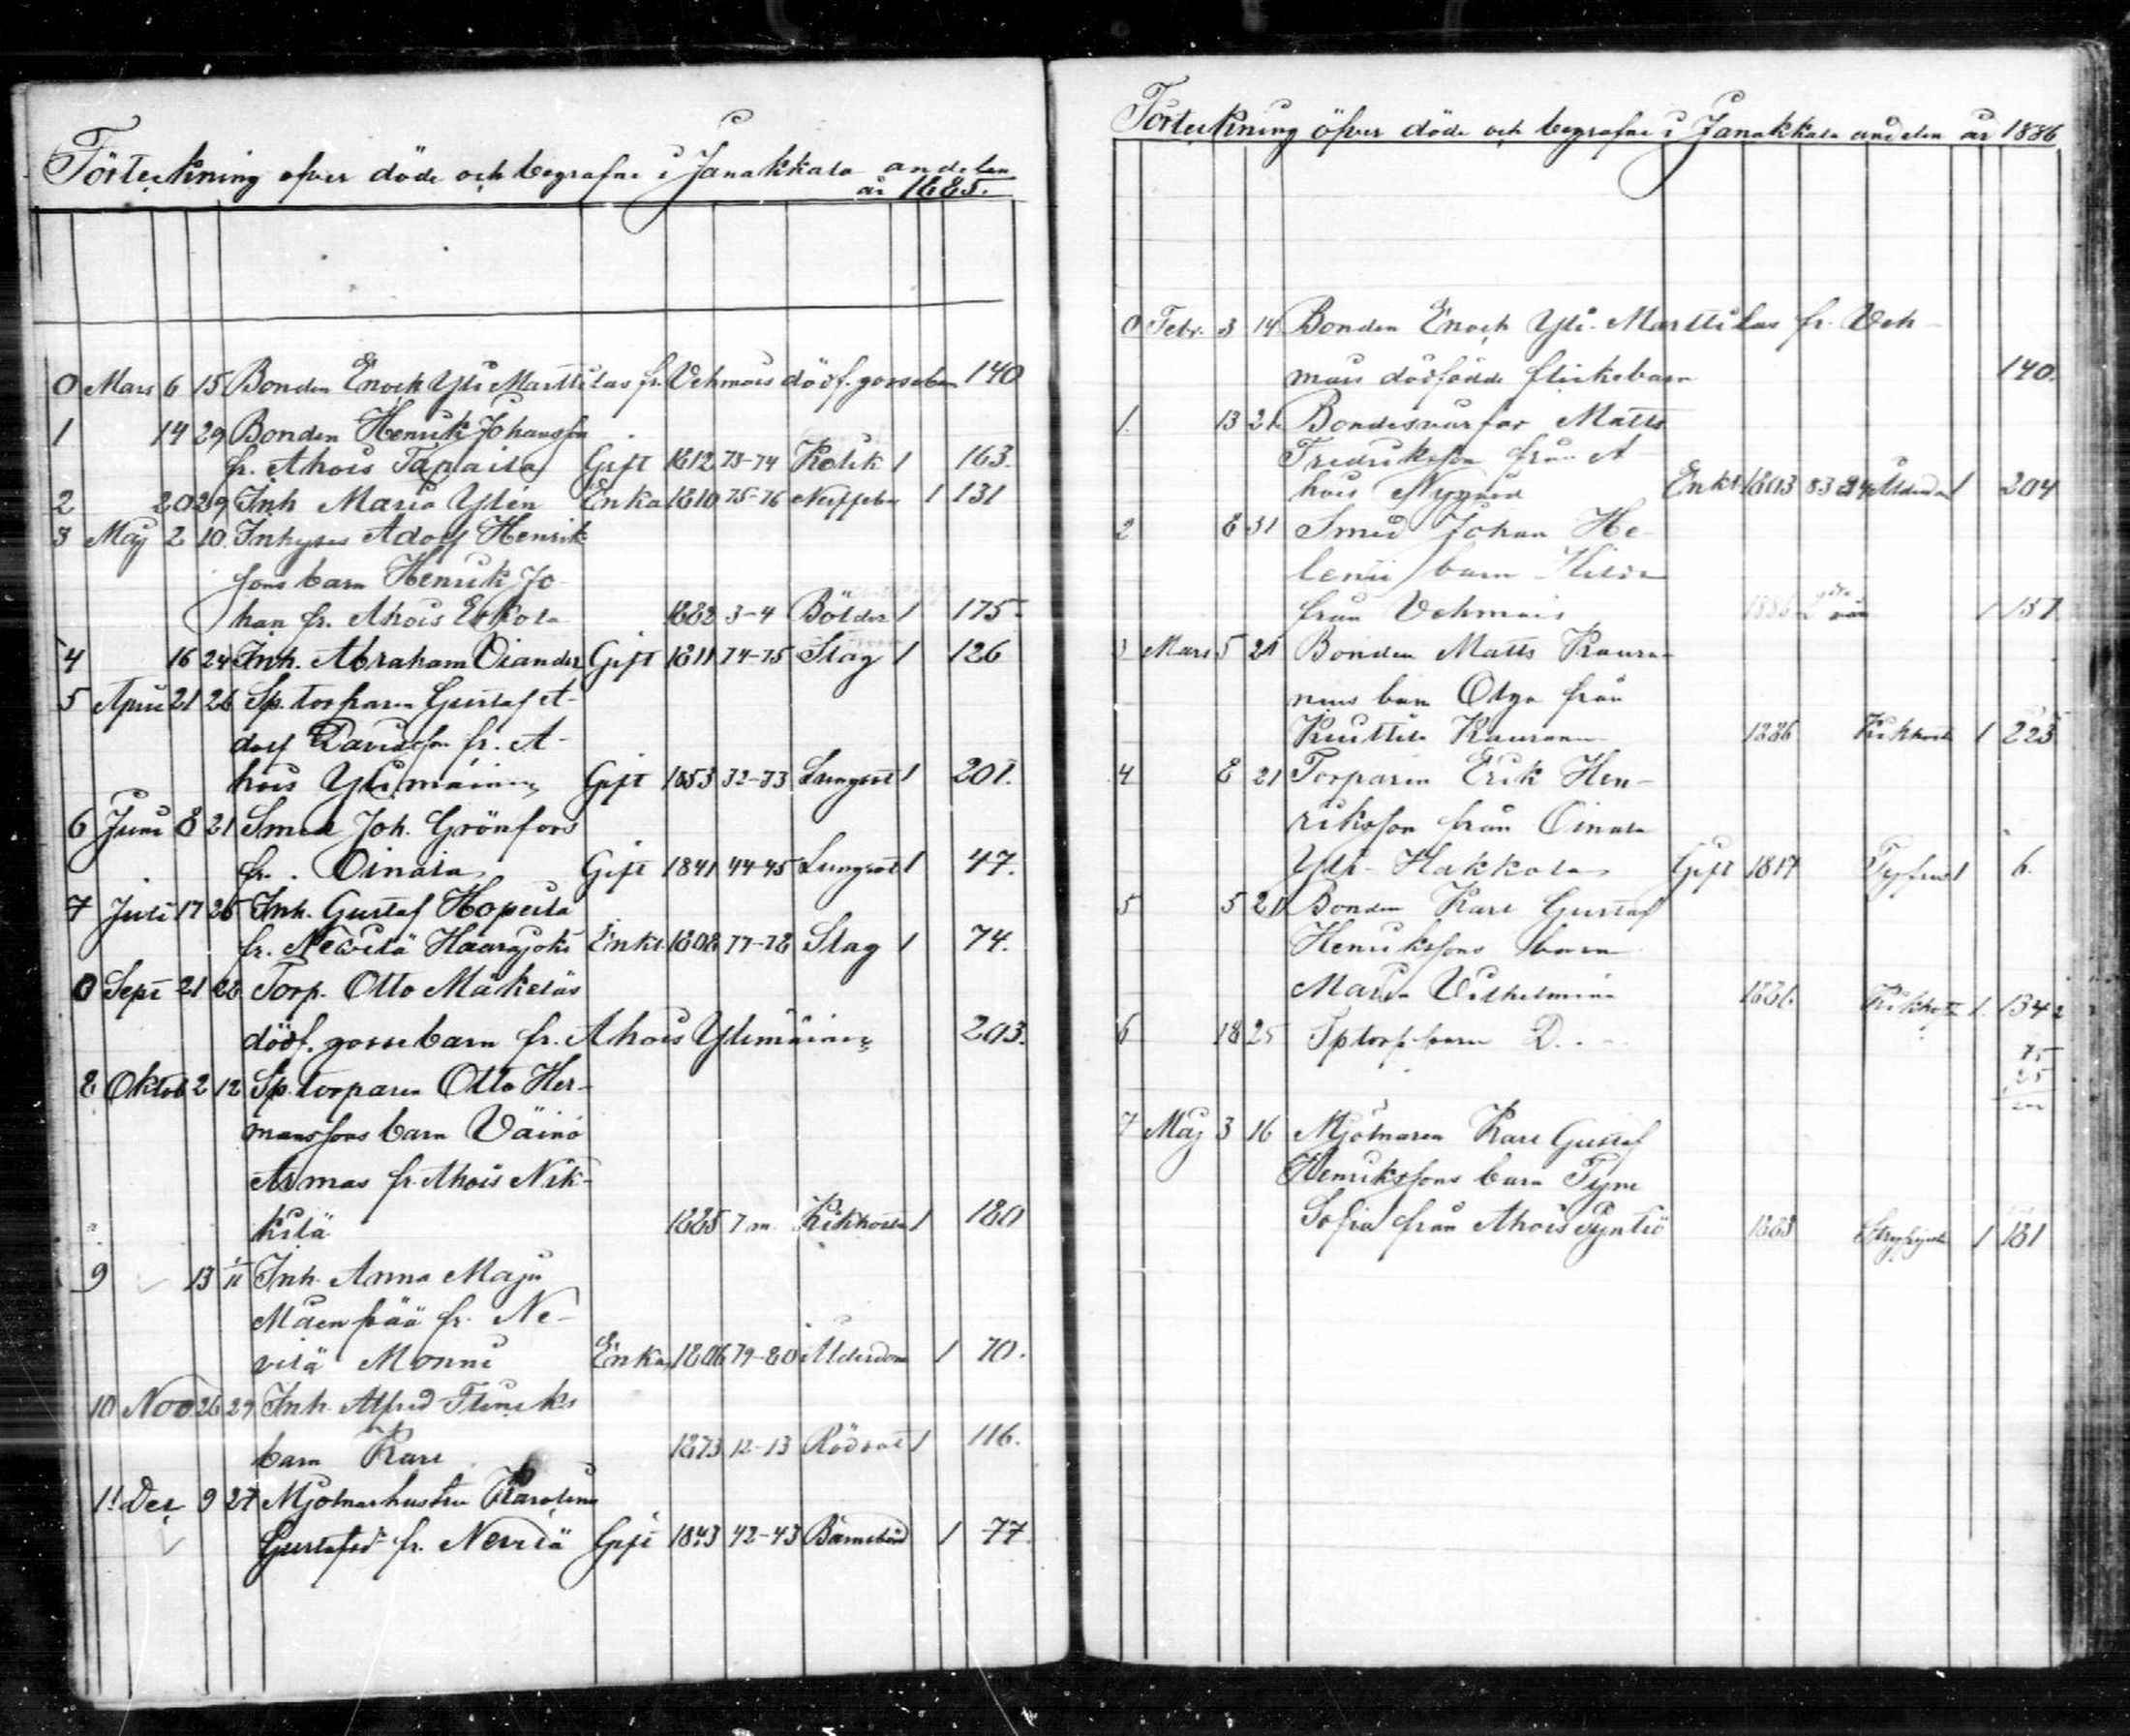 Förteckning öfver döde och begrafne i Janakkala andelen
år 1885.
0 Mars 6 15 Bonden Enock Yli Marttilas fr. Vehmais dödf. gossebarn 140
1 14 29 Bonden Henrik Johansson
fr. Ahois Tapaila Gift 1812 73-74 Kolik 1 163.
2 20 29 Inh Maria Ylén Enka 1810 75-76 1 131
3 Maj 2 10. Inhyses Adolf Henrik-
sons barn Henrik Jo-
han fr. Ahois Erkola 1882 3-4 Bölder 1 175.
4 16 24 Inh. Abraham Oiander Gift 1811 74-75 Slag 1 126
5 April 21 26 Sp. torparen Gustaf A-
dolf Davidsson fr. A-
hois Ylimäinen Gift 1853 32-33 Lungsot 1 201.
6 Juni 8 21 Smed Joh. Grönfors
fr. Oinala Gift 1841 44-45 Lungsot 1 47.
7 Juli 17 26 Inh. Gustaf Hopeila
fr. Nevilä Haarajoki Enkl. 1808 77-78 Slag 1 74.
0 Sept 21 28 Torp. Otto Mäkeläs
dödf. gossebarn fr. Ahois Ylimäinen 203.
8 Oktob 2 12 Sp. torparen Otto Her-
manssons barn Väinö
Armas fr. Ahois Nik-
kilä 1885 7 m. Kikhosta 1 180
9 13 1/11 Inh. Anna Maja
Mäenpää fr. Ne-
vilä Monni Enka 1806 79-80 Ålderdom 1 70.
10 Nov 26 29 Inh. Alfred Flincks
barn Karl 1873 12-13 Rödsot 1 116.
11 Dec 9 27 Mjölnarhustru Karolina
Gustafsd. fr. Nevilä Gift 1843 42-43 Barnsbörd 1 77.
Förteckning öfver döde och begrafne i Janakkala andelen år 1886
0 Febr. 3 14 Bonden Enoch Yli-Marttilas fr. Veh-
mais dödfödde flickebarn 140.
1. 13 21. Bondesvärfar Matts
Fredriksson från A
hois Nygård Enkl. 1803 83 84 Ålderdom 1 204
2 8 31 Smed Johan He-
lenii barn Hilda
från Vehmais 1886 1 157
3 Mars 5 21 Bonden Matts Kaura-
nens barn Olga från
Knuttila Kauranen 1886 Kikhosta 1 225
4 8 21 Torparen Erik Hen-
riksson från Oinala
Yli-Hakkola Gift 1817 Tyfus 1 6.
5 5 21 Bonden Karl Gustaf
Henrikssons barn
Maria Vilhelmina 1886. Kikhosta 1. 134
6 18 25 Sp torp. barn D.
75
25
7 Maj 3 16 Mjölnaren Karl Gustaf
Henrikssons barn Tyne
Sofia från Ahois Pyntiö 1883 1 181